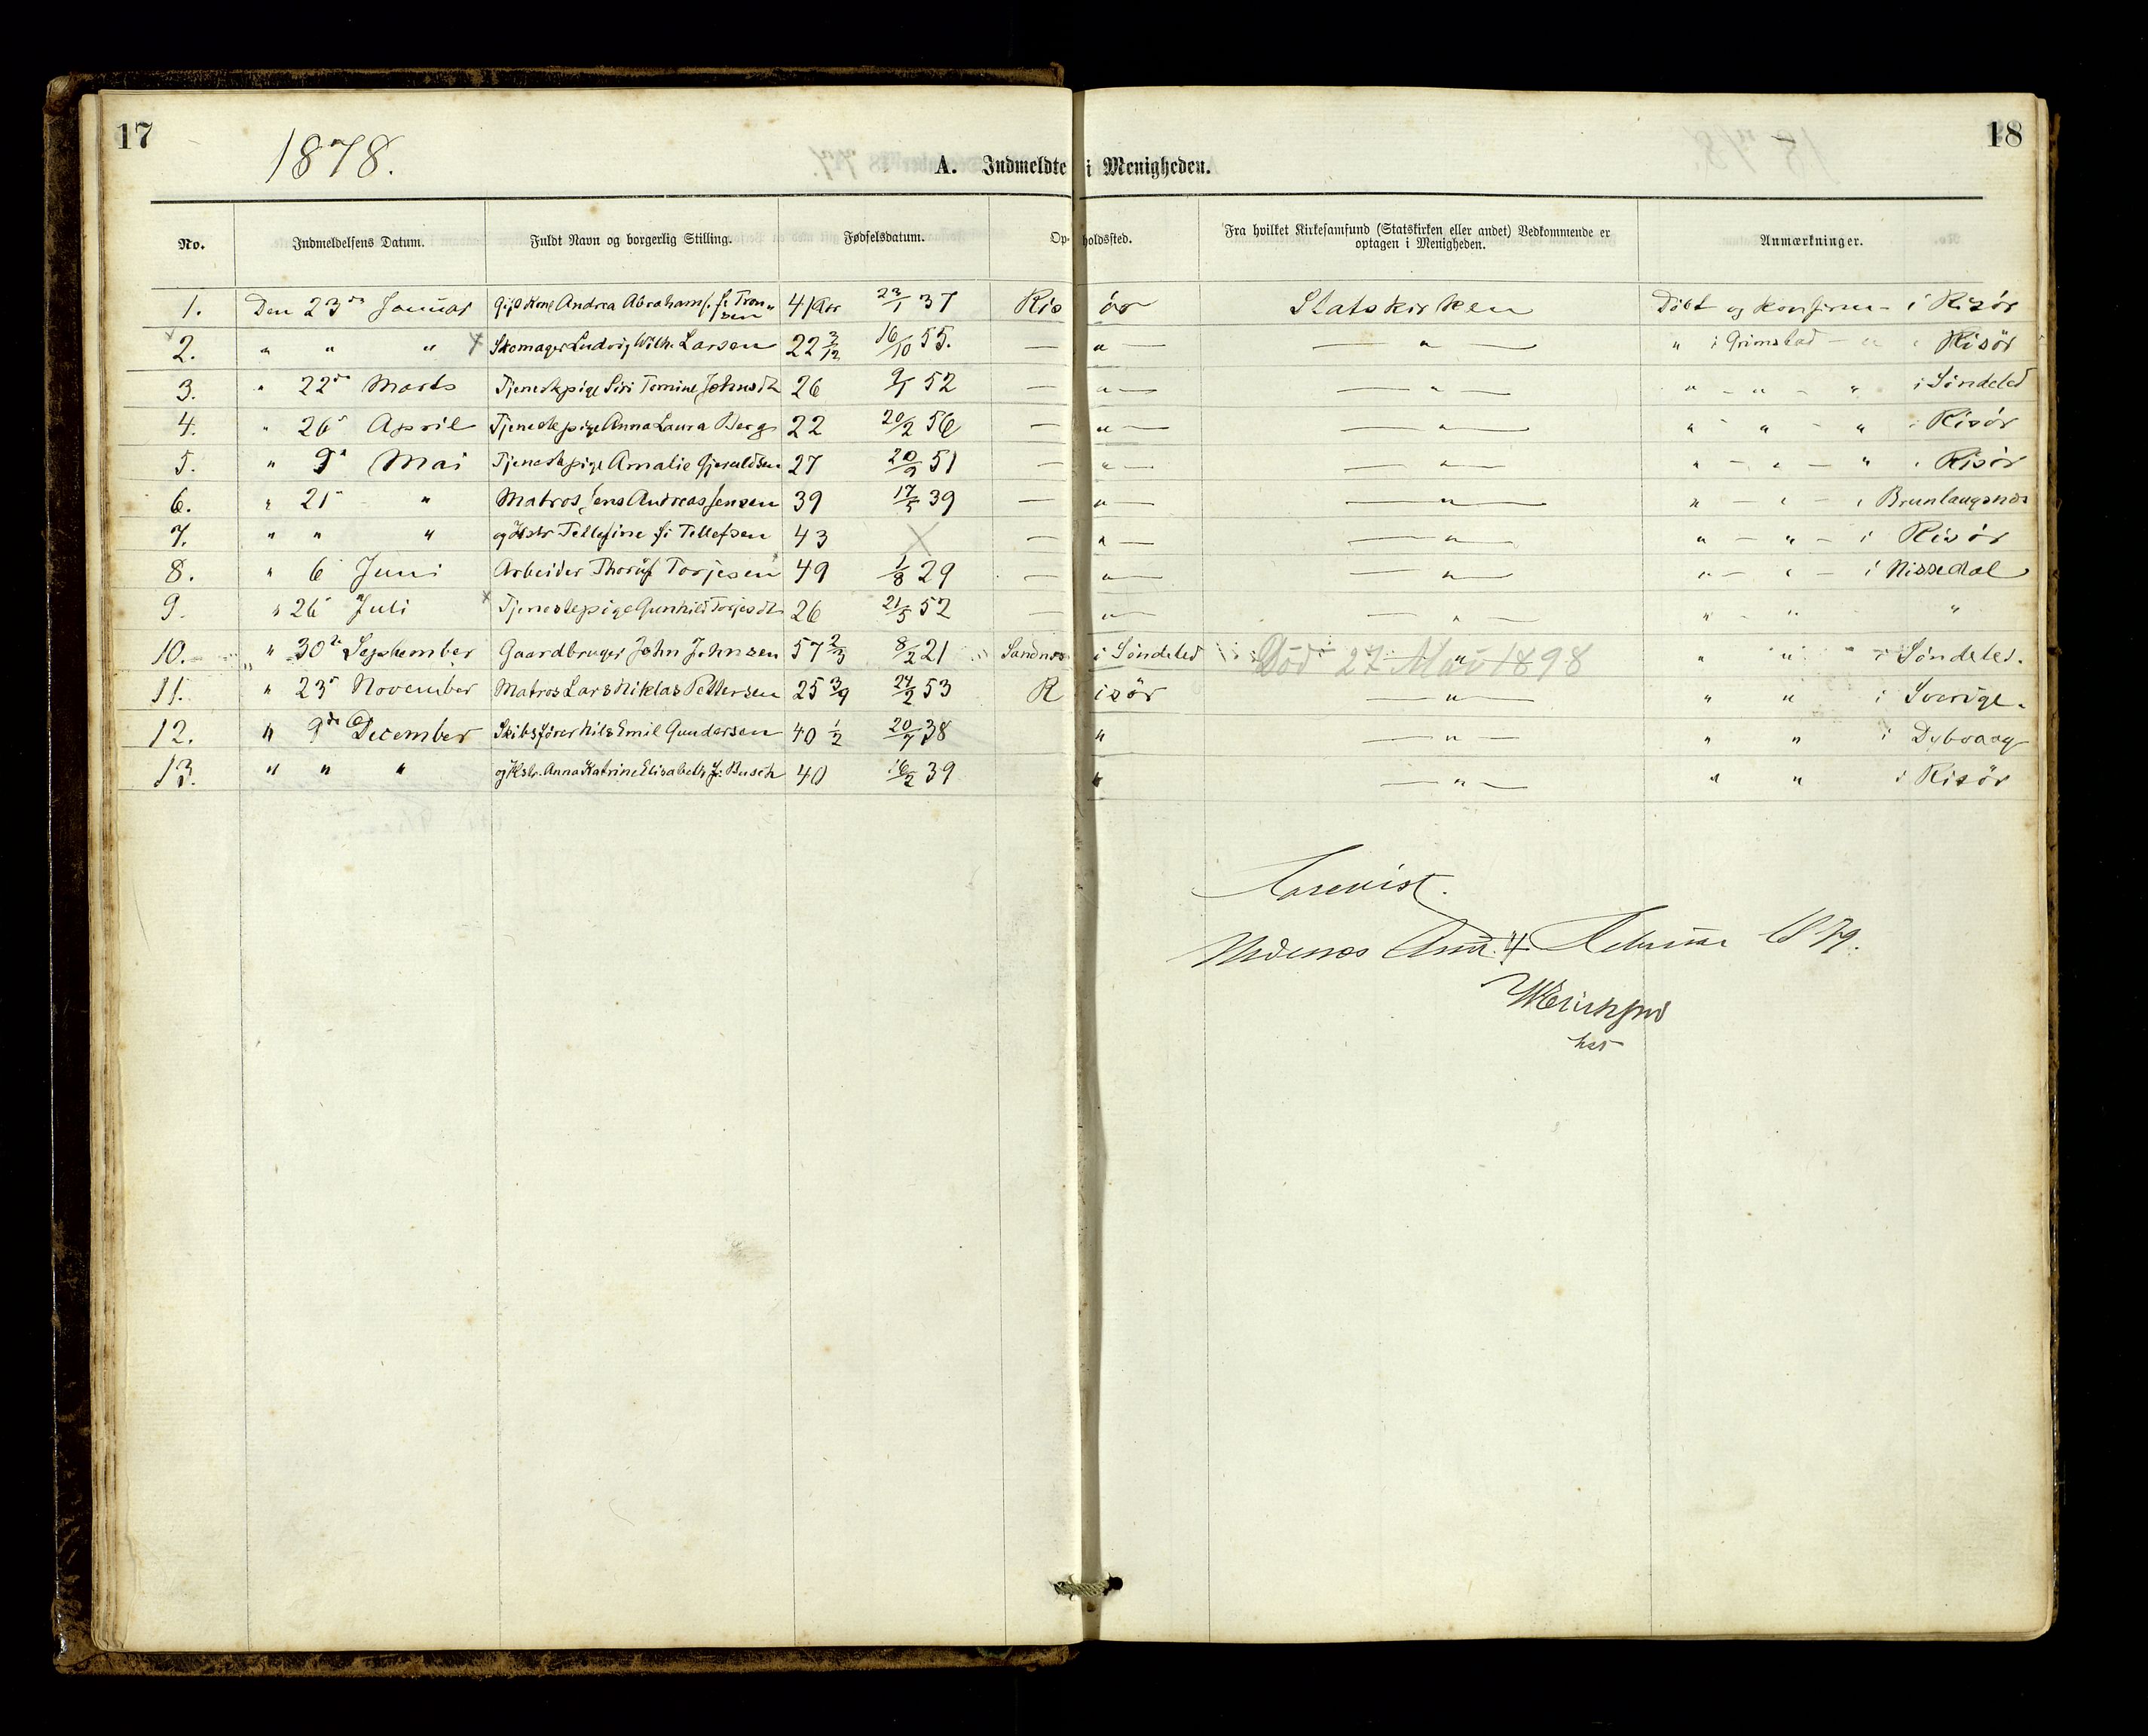 17
1878.
A. Indmeldte i Menigheden.
18
No. Indmeldelsens Datum. Fuldt Navn og borgerlig Stilling. Fødselsdatum. Opholdssted. Fra hvilket Kirkesamfund (Statskirken eller andet) Vedkommende er optagen i Menigheden. Anmærkninger.
1. Den 23de Januar Gift Kone Andrea Abrahams. f. Tronsen 41 Aar 23/1 37 Risör Statskirken Döbt og Konfirm- i Risör
2. " " " Skomager Ludvig Wilh. Larsen 22 3/12 16/10 55. — " — — " — " i Grimstad — " i Risör
3. " 22de Marts Tjenestepige Siri Tomine Johnsdt 26 9/1 52 — " — — " — " — " — " i Söndeled
4. " 26 April Tjenestepige Anna Laura Berg 22 20/2 56 — " — — " — " — " — " i Risör
5. " 9 Mai Tjenestepige Amalie Gjeruldsen 27 20/9 51 — " — — " — " — " — " i Risör
6. " 21 " Matros Jens Andreas Jensen 39 17/5 39 — " — — " — " — " — i Brunlaugsnæs
7. " " " og Hstr Tellefine f. Tellefsen 43 — " — — " — " — " — i Risör
8. " 6 Juni Arbeider Thorulf Torjesen 49 1/8 29 — " — — " — " — " — i Nissedal
9. " 26 Juli Tjenestepige Gunhild Torjesdt 26 21/5 52 — " — — " — " - " "
10. " 30te September Gaardbruger John Johnsen 57 2/3 8/2 21 Sandnæs i Söndeled — " — Död 27 Mai 1898 " " i Söndeled.
11. " 23 November Matros Lars Niklas Pettersen 25 3/9 24/2 53 Risör — " — " " i Sverige.
12. " 9de December Skibsförer Nils Emil Gundersen 40 1/2 20/7 38 " — " — " " i Dybvaag
13. " " " og Hstr. Anna Katrine Elisabeth f. Busch 40 16/2 39 " — " — " " i Risör
Forevist.
Nedenæs Amt 4 Februar 1879.